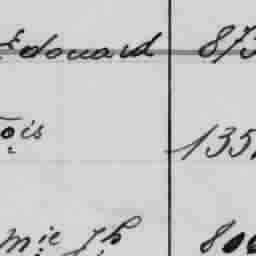 Edouard 873
ois 135
mie Jh 800